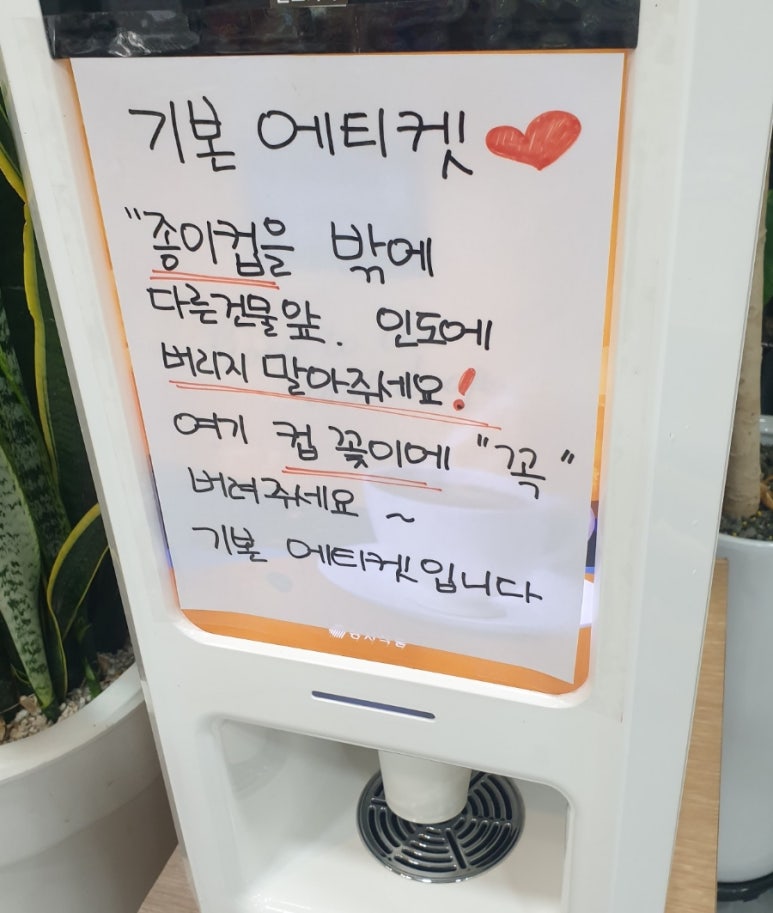 기본 에티켓
"종이컵을 밖에
다른건물앞. 인도에
버리지 말아주세요!
여기 컵 꽂이에 "꼭"
버려주세요 ~
기본 에티켓입니다